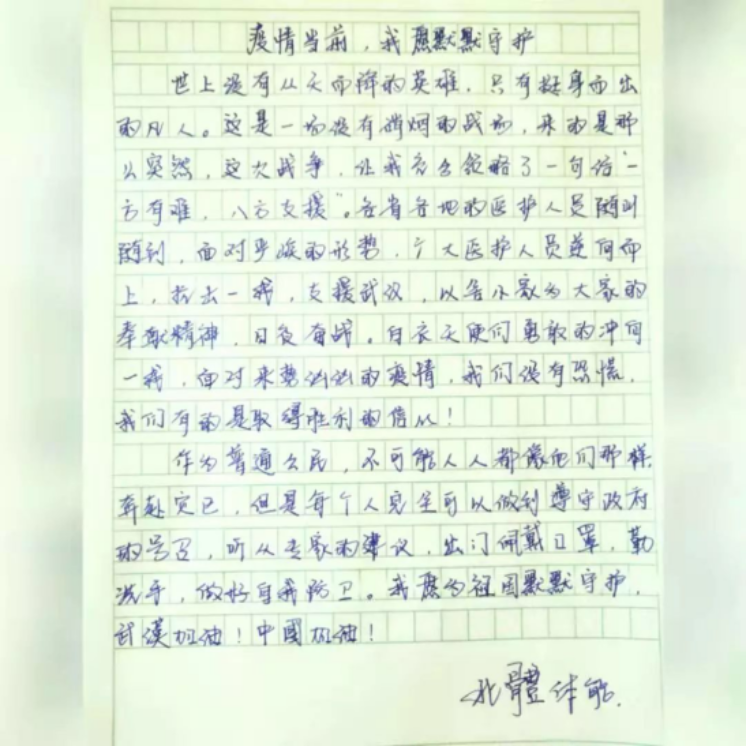 疫情当前，我愿默默守护
世上没有从天而降的英雄，只有挺身而出
的凡人。这是一场没有硝烟的战场，来的是那
么突然，这次战争，让我充分领略了一句话“一
方有难，八方支援”。各省各地的医护人员随叫
随到，面对严峻的形势，广大医护人员逆向而
上，抗击一线，支援武汉，以舍小家为大家的
奉献精神，日夜奋战。白衣天使们勇敢的冲向
一线，面对来势汹汹的疫情，我们没有恐慌，
我们有的是取得胜利的信心！
作为普通公民，不可能人人都像他们那样
奔赴灾区，但是每个人完全可以做到遵守政府
的号召，听从专家的建议，出门佩戴口罩，勤
洗手，做好自我防卫。我愿为祖国默默守护，
武漢加油！中國加油！
體体能